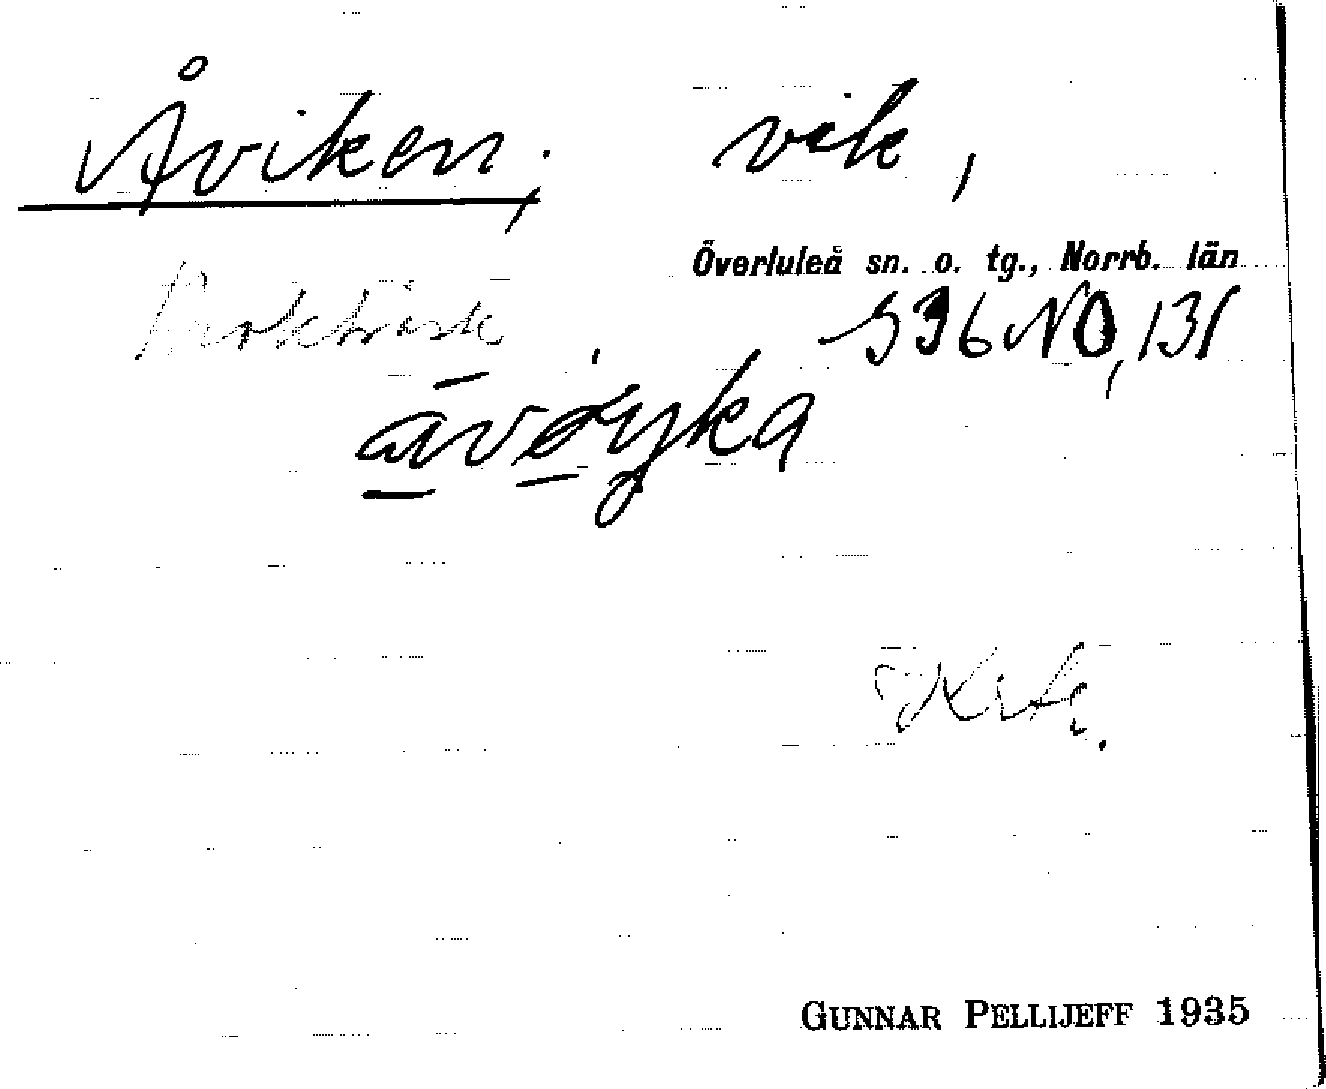 Åviken; vik,
Överluleå sn. o. tg., Norrb. län
S36NO, 131
avøyka
GUNNAR PELLIJEFF 1935